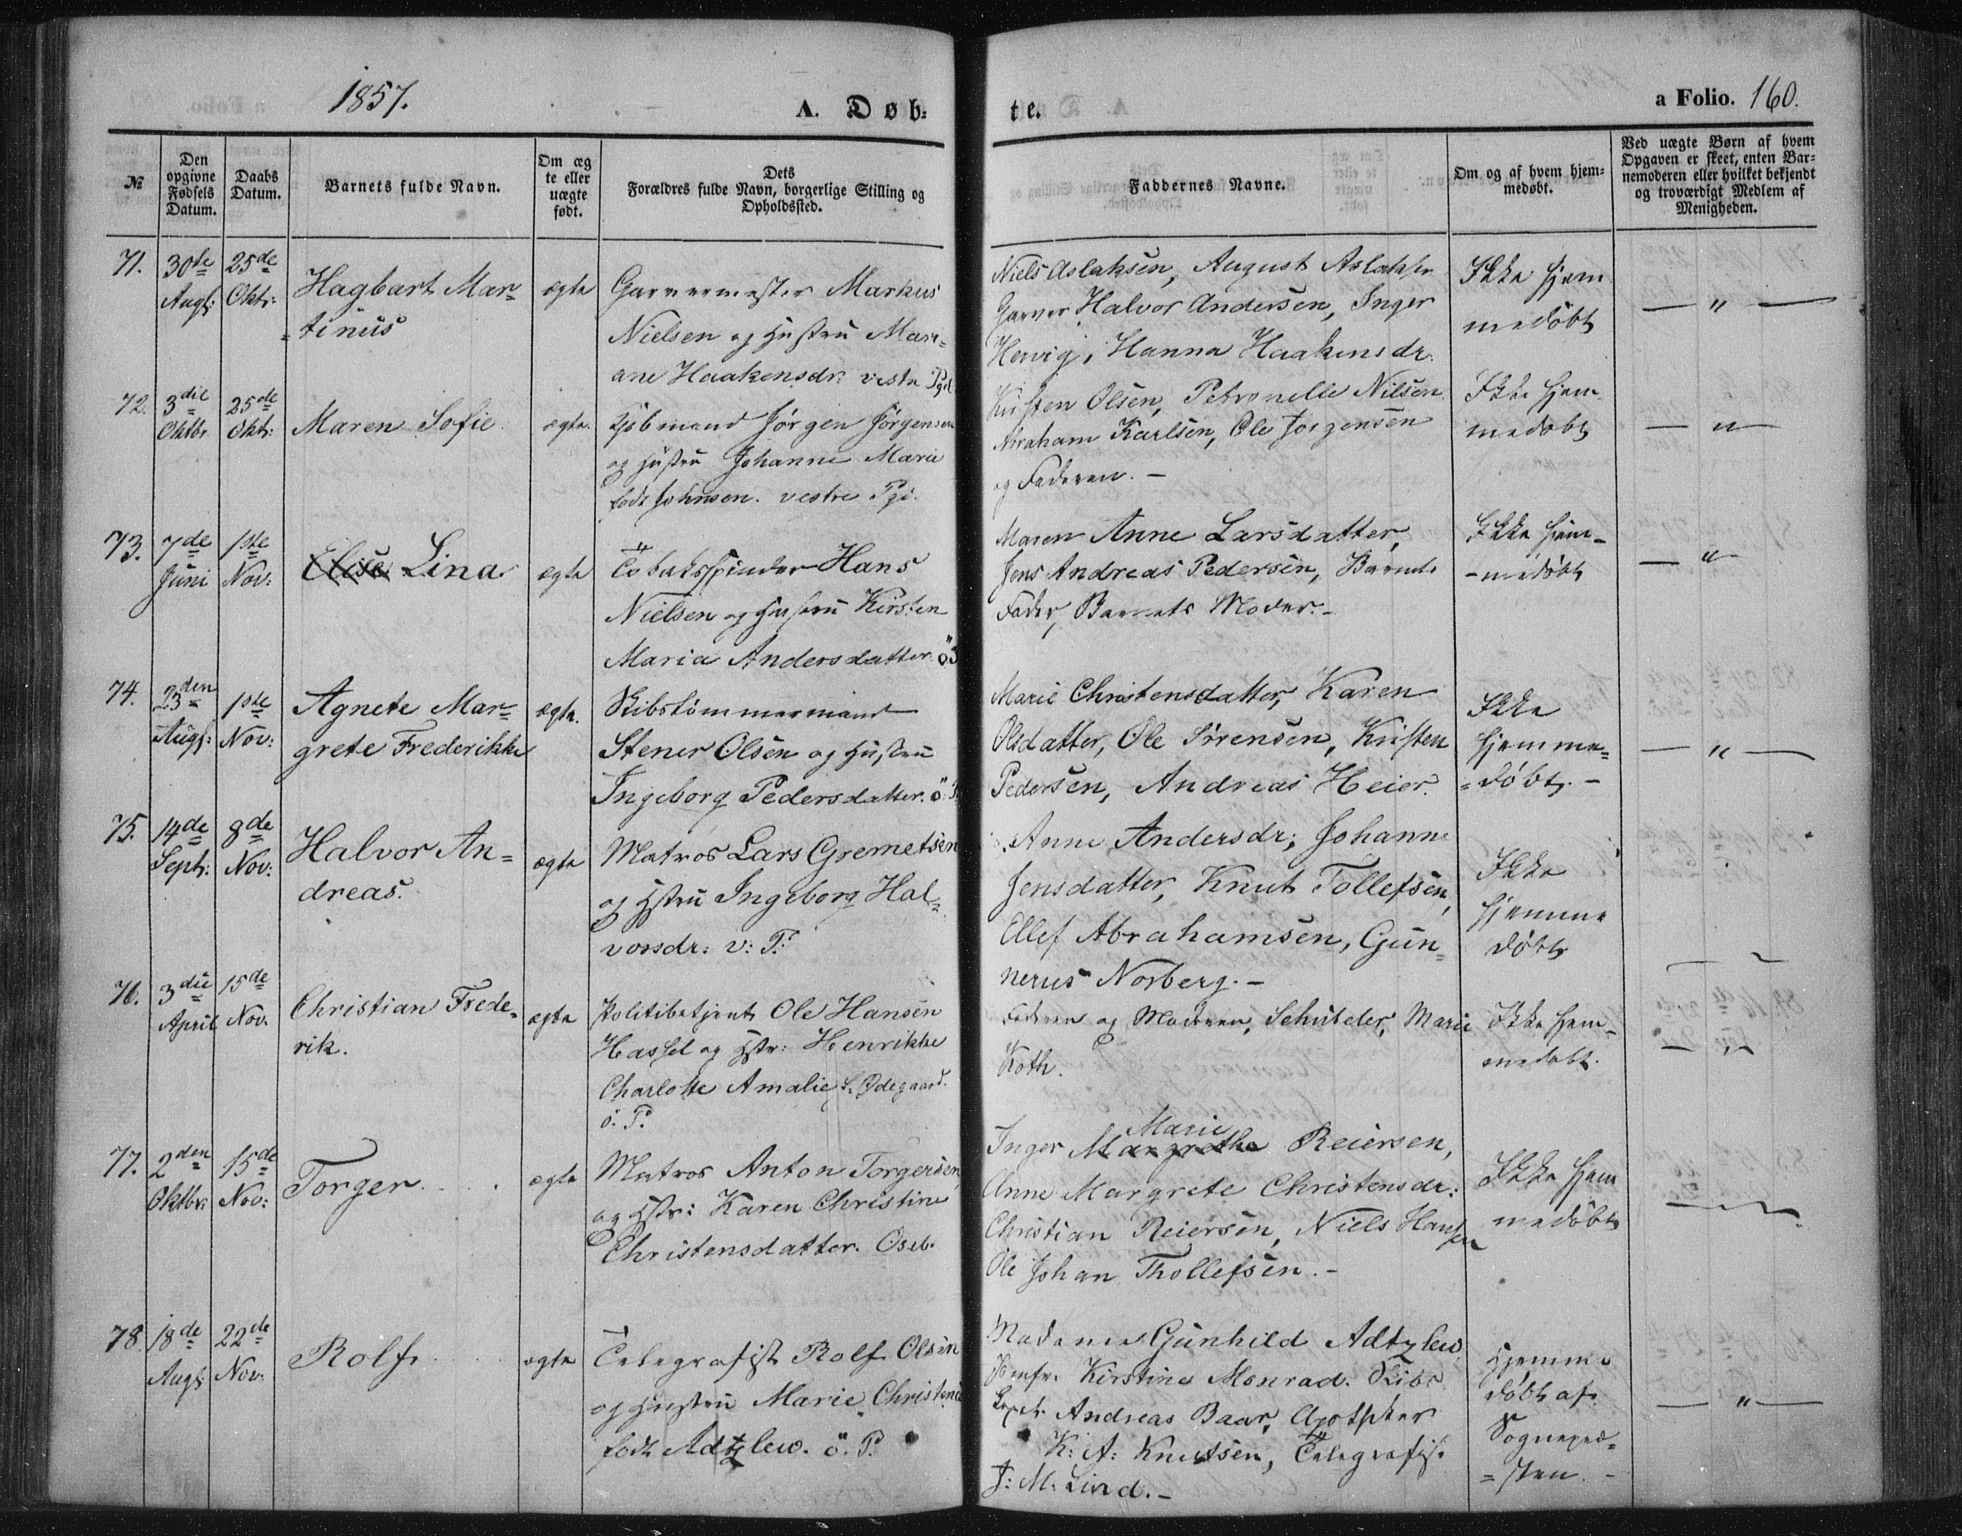 1857.
A. Døb-
te.
a Folio. 160.
№
Den opgivne Fødsels Datum.
Daabs Datum.
Barnets fulde Navn.
Om ægte eller uægte født.
Dets Forældres fulde Navn, borgerlige Stilling og Opholdssted.
Faddernes Navne.
Om og af hvem hjemmedøbt.
Ved uægte Børn af hvem Opgaven er skeet, enten Barnemoderen eller hvilket bekjendt og troværdigt Medlem af Menigheden.
71. 30te Augs: 25de Oktr:
Hagbart Mar-
-tinus
ægte
Garvermester Markus
Nielsen og Hustru Mari-
ane Haakensdr. vestre Pgd
Niels Aslaksen, August Aslaksen
Garver Halvor Andersen, Inger
Hervig, Hanna Haakensdr.
Ikke hjem
medøbt
— " —
72. 3die Oktbr 25de Oktr:
Maren Sofie
ægte.
Kjøbmand Jørgen Jørgensen
og Hustru Johanne Marie
født Johnsen. vestre Pgi.
Kirsten Olsen, Petronelle Nilsen
Abraham Karlsen, Ole Jørgensen
og Faderen. —
Ikke hjem
medøbt
— " —
73. 7de Juni 1ste Nov:
Elise Lina
ægte
Tobaksspinder Hans
Nielsen og Hustru Kirsten
Maria Andersdatter. ö.
Maren Anne Larsdatter,
Jens Andreas Pedersen, Barnets
Fader, Barnets Moder. -
Ikke hjem-
-medøbt
— " —
74. 23den Augs: 1ste Nov:
Agnete Mar-
grete Frederikke
ægte.
Skibstømmermand
Stener Olsen og Hustru
Ingeborg Pedersdatter. ö. P.
Marie Christensdatter, Karen
Olsdatter, Ole Sørensen, Kirsten
Pedersen, Andreas Heier.
Ikke
hjemme-
-døbt. -
— " —
75. 14de Septr: 8de Nov:
Halvor An-
dreas.
ægte
Matros Lars Gremetsen
og Hstru Ingeborg Hal-
vorsdr: v: P:
Anne Andersdr; Johanne
Jensdatter, Knut Tollefsen,
Ellef Abrahamsen, Gun-
nerius Norberg. -
Ikke
hjemme
døbt
76. 3die April 15de Nov.
Christian Frede-
rik.
ægte
Politibetjent Ole Hansen
Hassel og Hstr: Henrikke
Charlotte Amalie f. Ødegaard.
ö. P.
Faderen og Moderen, Schulder, Marie
Koth.
Ikke hjem-
medøbt.
— " —
77. 2den Oktbr: 15de Nov:
Torger
ægte
Matros Anton Torgersen
og Hstr: Karen Christine
Christensdatter. Oseb.
Marie
Inger Margrethe Reiersen,
Anne Margrete Christensdr:
Christian Reiersen, Niels Hansen
Ole Johan Thollefsen. -
Ikke hjem
medøbt
78. 18de Augs: 22de Nov:
Rolf
ægte
Telegrafist Rolf Olsen
og Hustru Marie Christine
født Adtzlew. ö. P.
Madame Gunhild Adtzlew
Jomfr. Kirstine Monrad. Skibs
Kapt. Andreas Baar, Apotheker
K: A: Knutsen, Telegrafist
J: M: Lind. -
Hjemme
døbt af
Sognepræ-
-sten. -
— " —